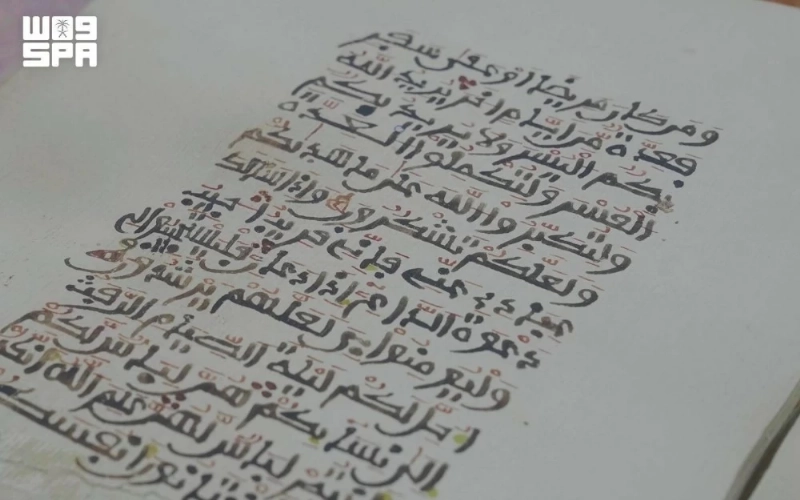 واس
SPA
ومن كان مريضا او على سفر
فعدة من ايام اخر يريد الله
بكم اليسر ولا يريد بكم
العسر ولتكملوا العدة
ولتكبروا الله على ما هديكم
ولعلكم تشكرون واذا سالك
عبادي عني فاني قريب اجيب
دعوة الداع اذا دعان فليستجيبوا لي
وليومنوا بي لعلهم يرشدون
احل لكم ليلة الصيام الرفث
الى نسايكم هن لباس لكم
وانتم لباس لهن علم الله انكم
تختانون انفسكم